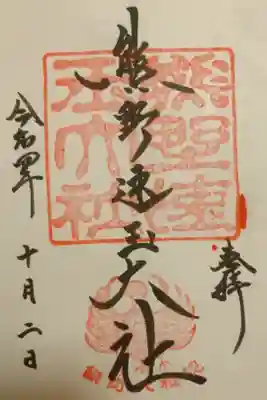 奉拝
熊野速玉大社
令和四年
十月二日
熊野速玉大社